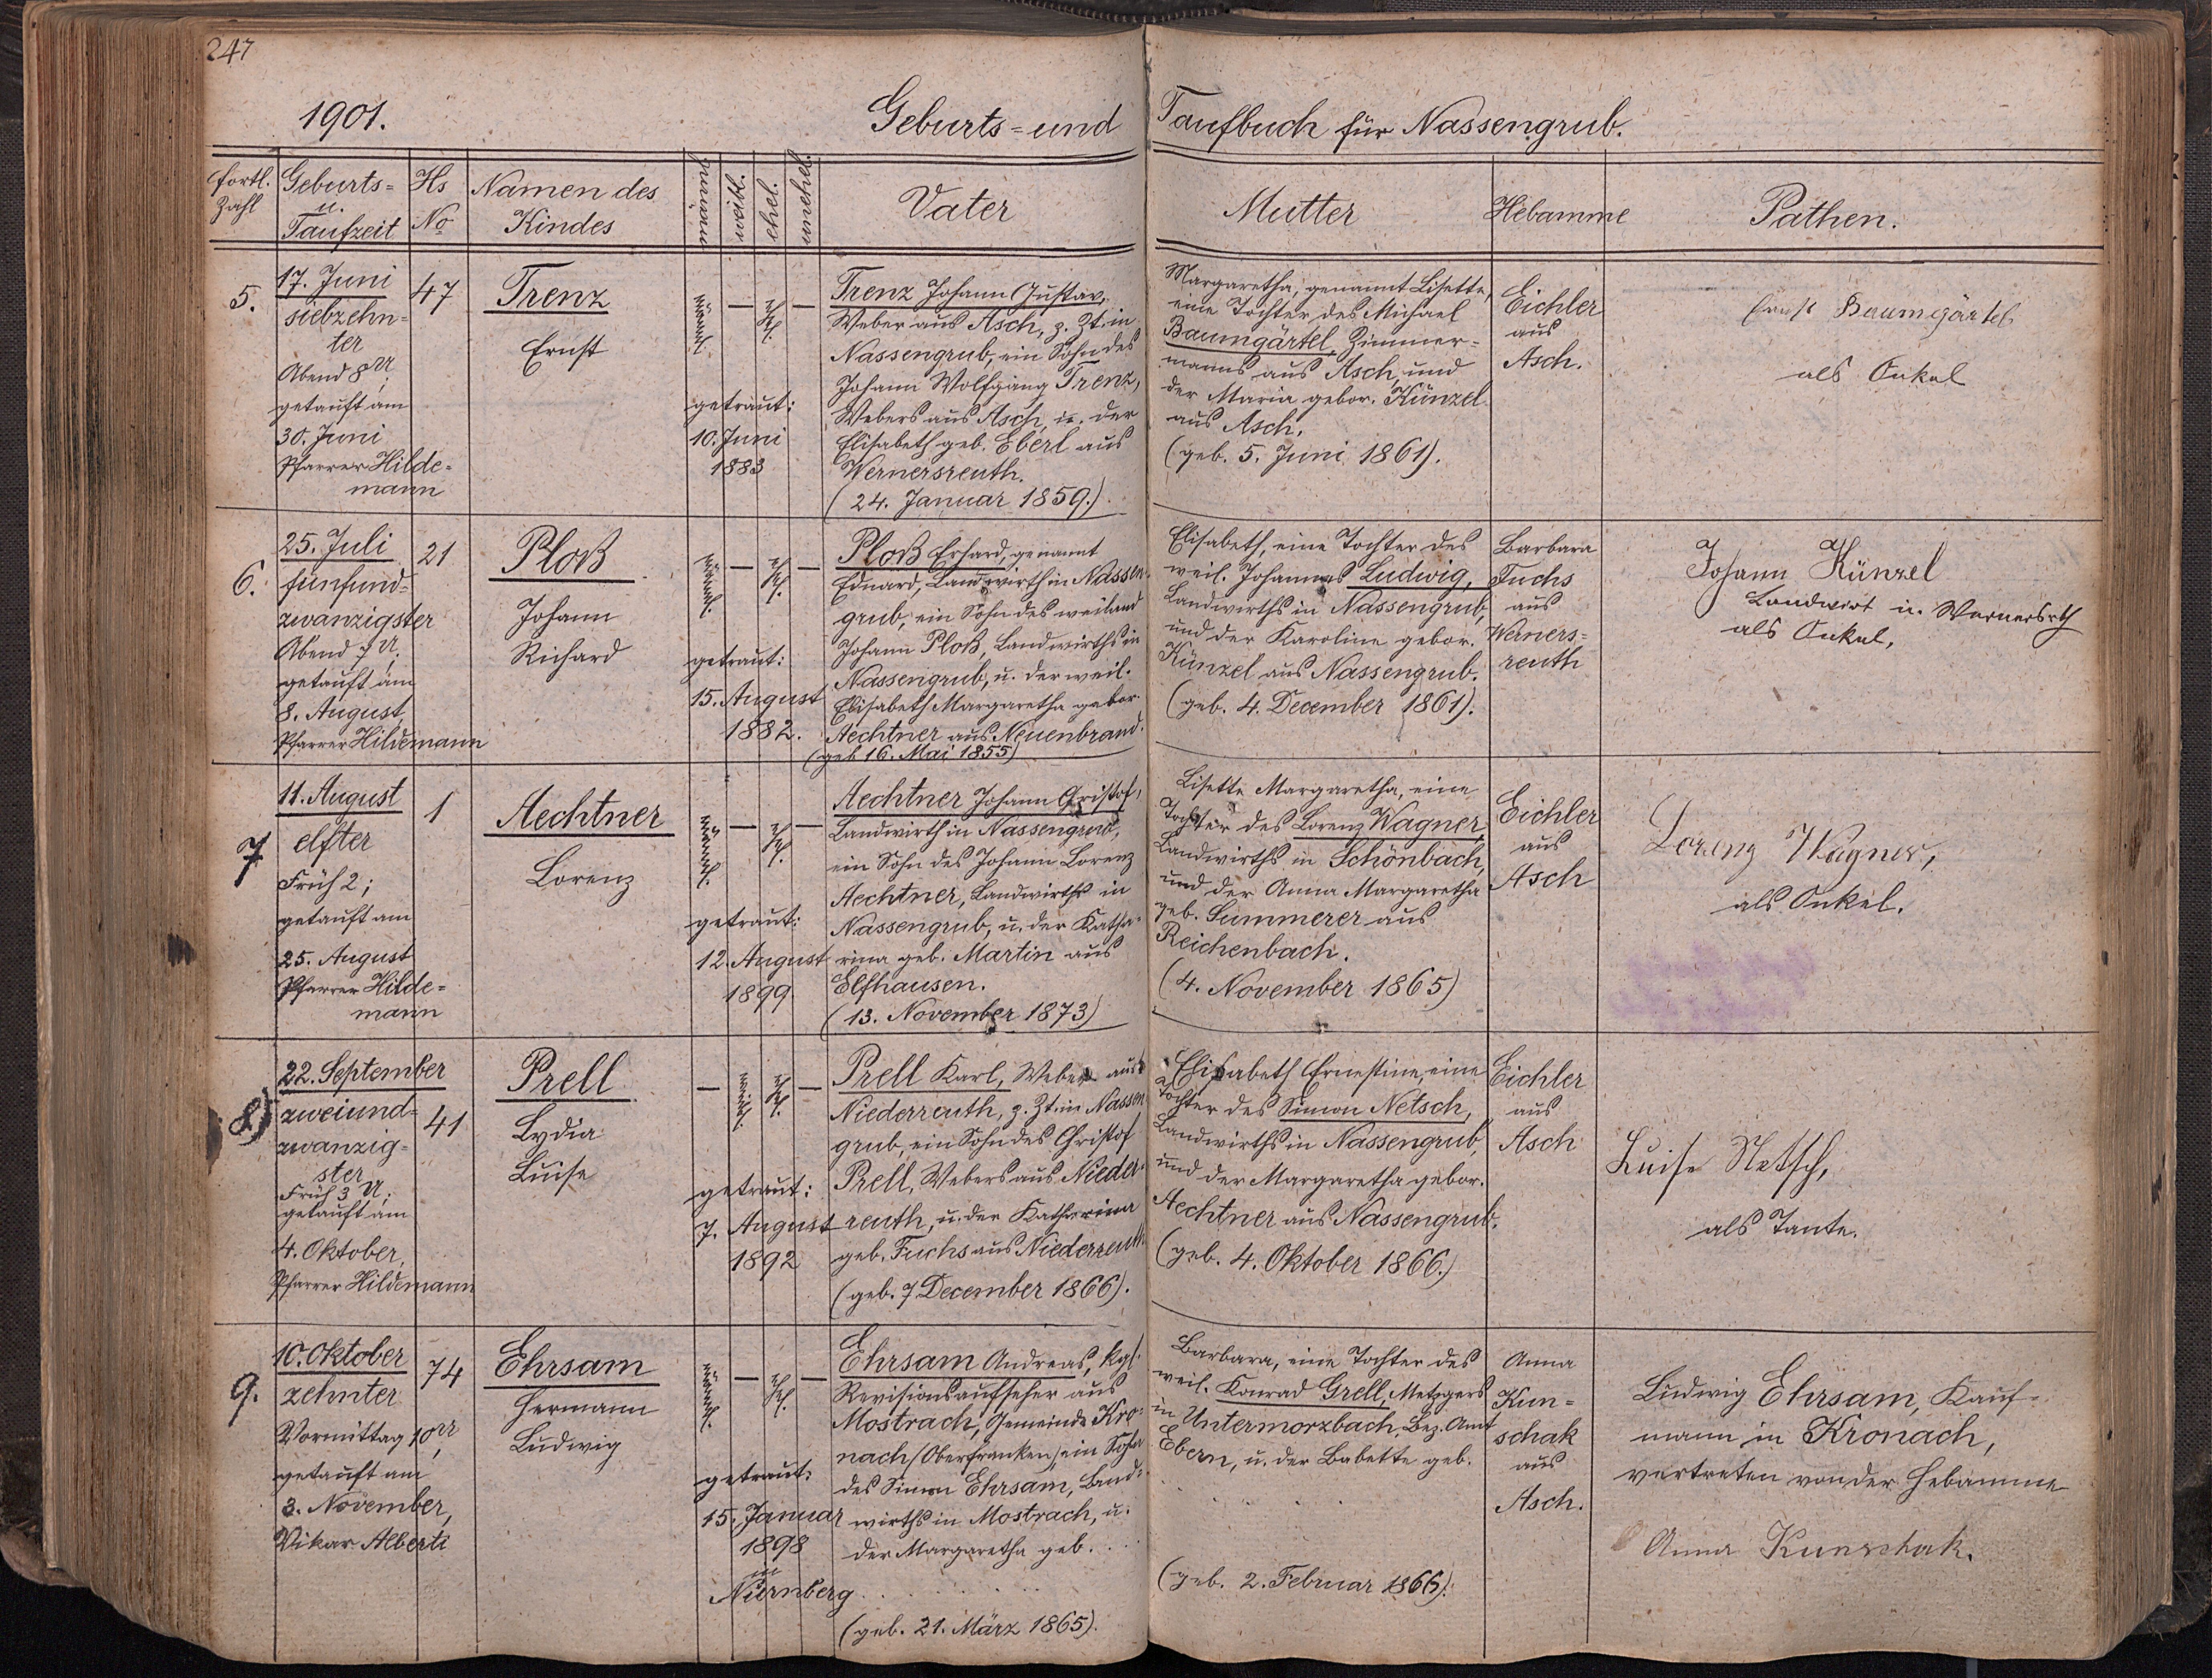 247
1901. Geburts- und Taufbuch für Nassengrub.
fortl. Zahl
Geburts- u. Taufzeit
Hs No
Namen des Kindes
männl.
weibl.
ehel.
unehel.
Vater
Mutter
Hebamme
Pathen.
5.
17. Juni
siebzehn-
ter
Abend 8 U,
getauft am
30. Juni
Pfarrer Hilde-
mann
47
Trenz
Ernst
männl. — ehel. —
getraut:
10. Juni
1883
Trenz Johann Gustav,
Weber aus Asch, z. Zt. in
Nassengrub, ein Sohn des
Johann Wolfgang Trenz,
Webers aus Asch, u. der
Elisabeth geb. Eberl aus
Wernersreuth.
(24. Januar 1859.)
Margaretha, genannt Lisette,
eine Tochter des Michael
Baumgärtel, Zimmer-
manns aus Asch, und
der Maria gebor. Künzel
aus Asch.
(geb. 5. Juni 1861).
Eichler
aus
Asch.
Ernst Baumgärtel
als Onkel
6.
25. Juli
fünfund-
zwanzigster
Abend 7 U.;
getauft am
8. August,
Pfarrer Hildemann
21
Ploß
Johann
Richard
männl. — ehel. —
getraut:
15. August
1882.
Ploß Erhard, genannt
Eduard, Landwirth in Nassen-
grub, ein Sohn des weiland
Johann Ploß, Landwirths in
Nassengrub, u. der weil.
Elisabeth Margaretha gebor.
Aechtner aus Neuenbrand.
(geb 16. Mai 1855)
Elisabeth, eine Tochter des
weil. Johannes Ludwig,
Landwirths in Nassengrub,
und der Karoline gebor.
Künzel aus Nassengrub.
(geb. 4. December 1861).
Barbara
Fuchs
aus
Werners-
reuth
Johann Künzel
Landwirt in Wernersrth
als Onkel,
7
11. August
elfter
Früh 2;
getauft am
25. August
Pfarrer Hilde-
mann
1
Aechtner
Lorenz
männl. — ehel. —
getraut:
12. August
1899
Aechtner Johann Christof,
Landwirth in Nassengrub,
ein Sohn des Johann Lorenz
Aechtner, Landwirths in
Nassengrub, u. der Katha-
rina geb. Martin aus
Elfhausen.
(13. November 1873)
Lisette Margaretha, eine
Tochter des Lorenz Wagner,
Landwirths in Schönbach,
und der Anna Margaretha
geb. Summerer aus
Reichenbach.
(4. November 1865)
Eichler
aus
Asch
Lorenz Wagner,
als Onkel.
8)
22. September
zweiund-
zwanzig-
ster
Früh 3 U;
getauft am
4. Oktober,
Pfarrer Hildemann
41
Prell
Lydia
Luise
— weibl. ehel. —
getraut:
7. August
1892
Prell Karl, Weber aus
Niederreuth, z. Zt. in Nassen
grub, ein Sohn des Christof
Prell, Webers aus Nieder-
reuth, u. der Katharina
geb. Fuchs aus Niederreuth.
(geb. 7. December 1866).
Elisabeth Ernestine, eine
Tochter des Simon Netsch,
Landwirths in Nassengrub,
und der Margaretha gebor.
Aechtner aus Nassengrub.
(geb. 4. Oktober 1866.)
Eichler
aus
Asch
Luise Netsch,
als Tante.
9.
10. Oktober
zehnter
Vormittag 10 U,
getauft am
3. November,
Vikar Alberti
74
Ehrsam
Hermann
Ludwig
männl. — ehel. —
getraut:
15. Januar
1898
in
Nürnberg
Ehrsam Andreas, kgl.
Revisionsaufseher aus
Mostrach, Gemeinde Kro-
nach (Oberfranken), ein Sohn
des Simon Ehrsam, Land-
wirths in Mostrach, u.
der Margaretha geb. . . .
(geb. 21. März 1865).
Barbara, eine Tochter des
weil. Konrad Grell, Metzgers
in Untermorzbach, Bez. Amt
Ebern, u. der Babette geb.
(geb. 2. Februar 1866).
Anna
Kun-
schak
aus
Asch.
Ludwig Ehrsam, Kauf-
mann in Kronach,
vertreten von der Hebamme
Anna Kunschak.